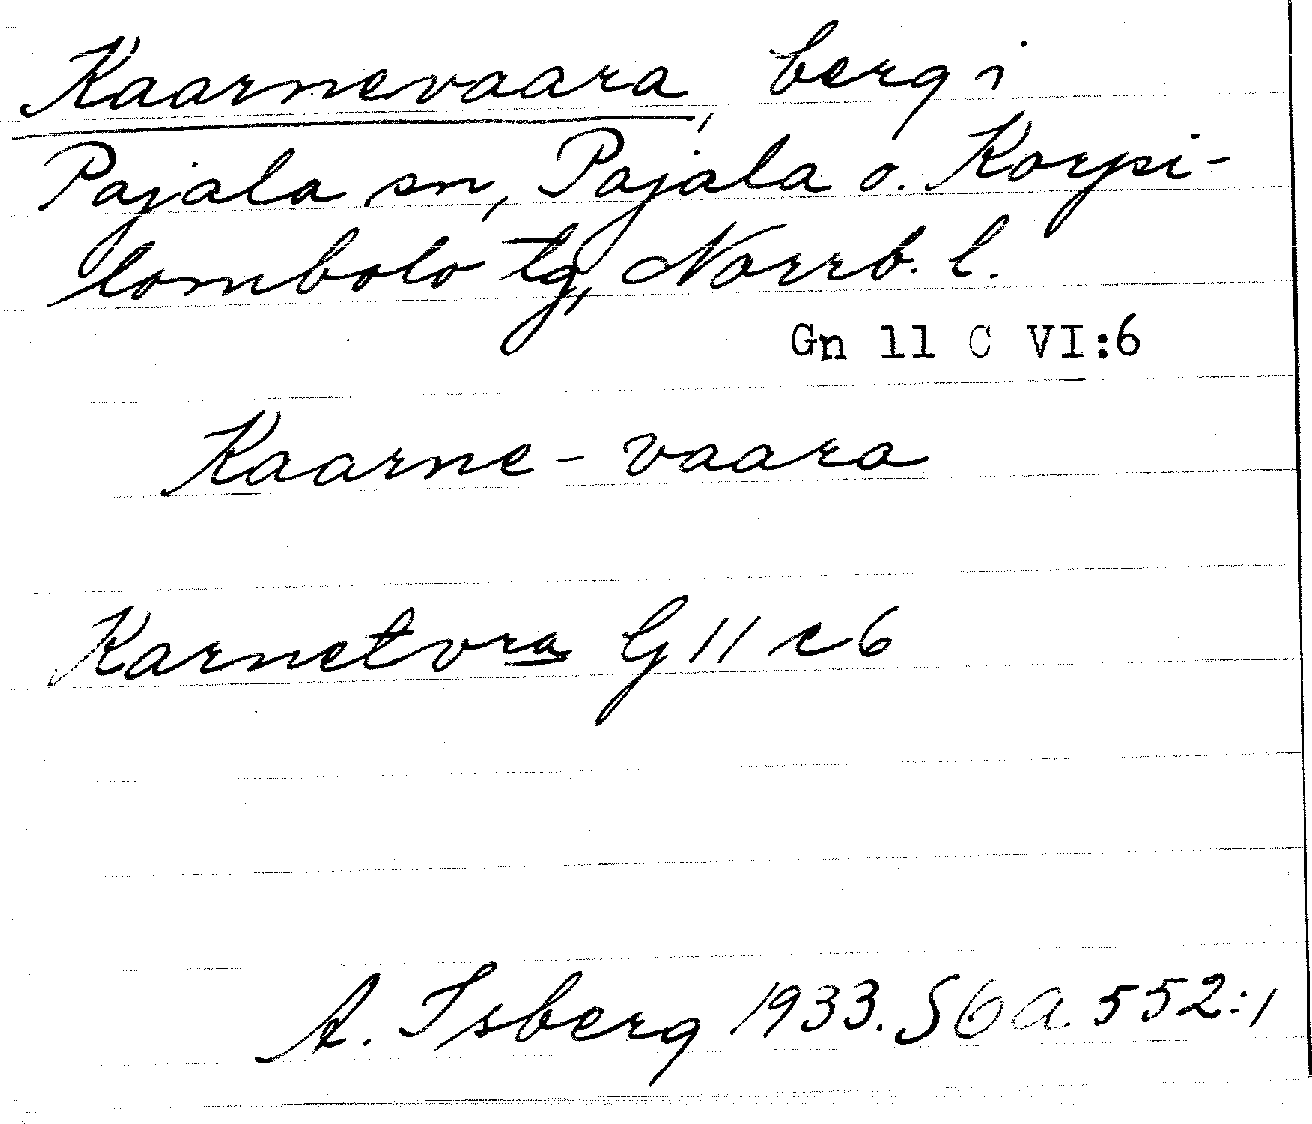 Kaarnevaara, berg i
Pajala sn, Pajala o. Korpi-
lombolo tg, Norrb. l.
Gn 11 C VI:6
Kaarne-vaara
Karnetvra G 11 c 6
A. Isberg 1933. SGA 552:1